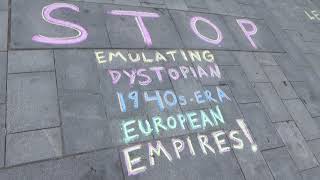 STOP
EMULATING
DYSTOPIAN
1940s-ERA
EUROPEAN
EMPIRES!
LE